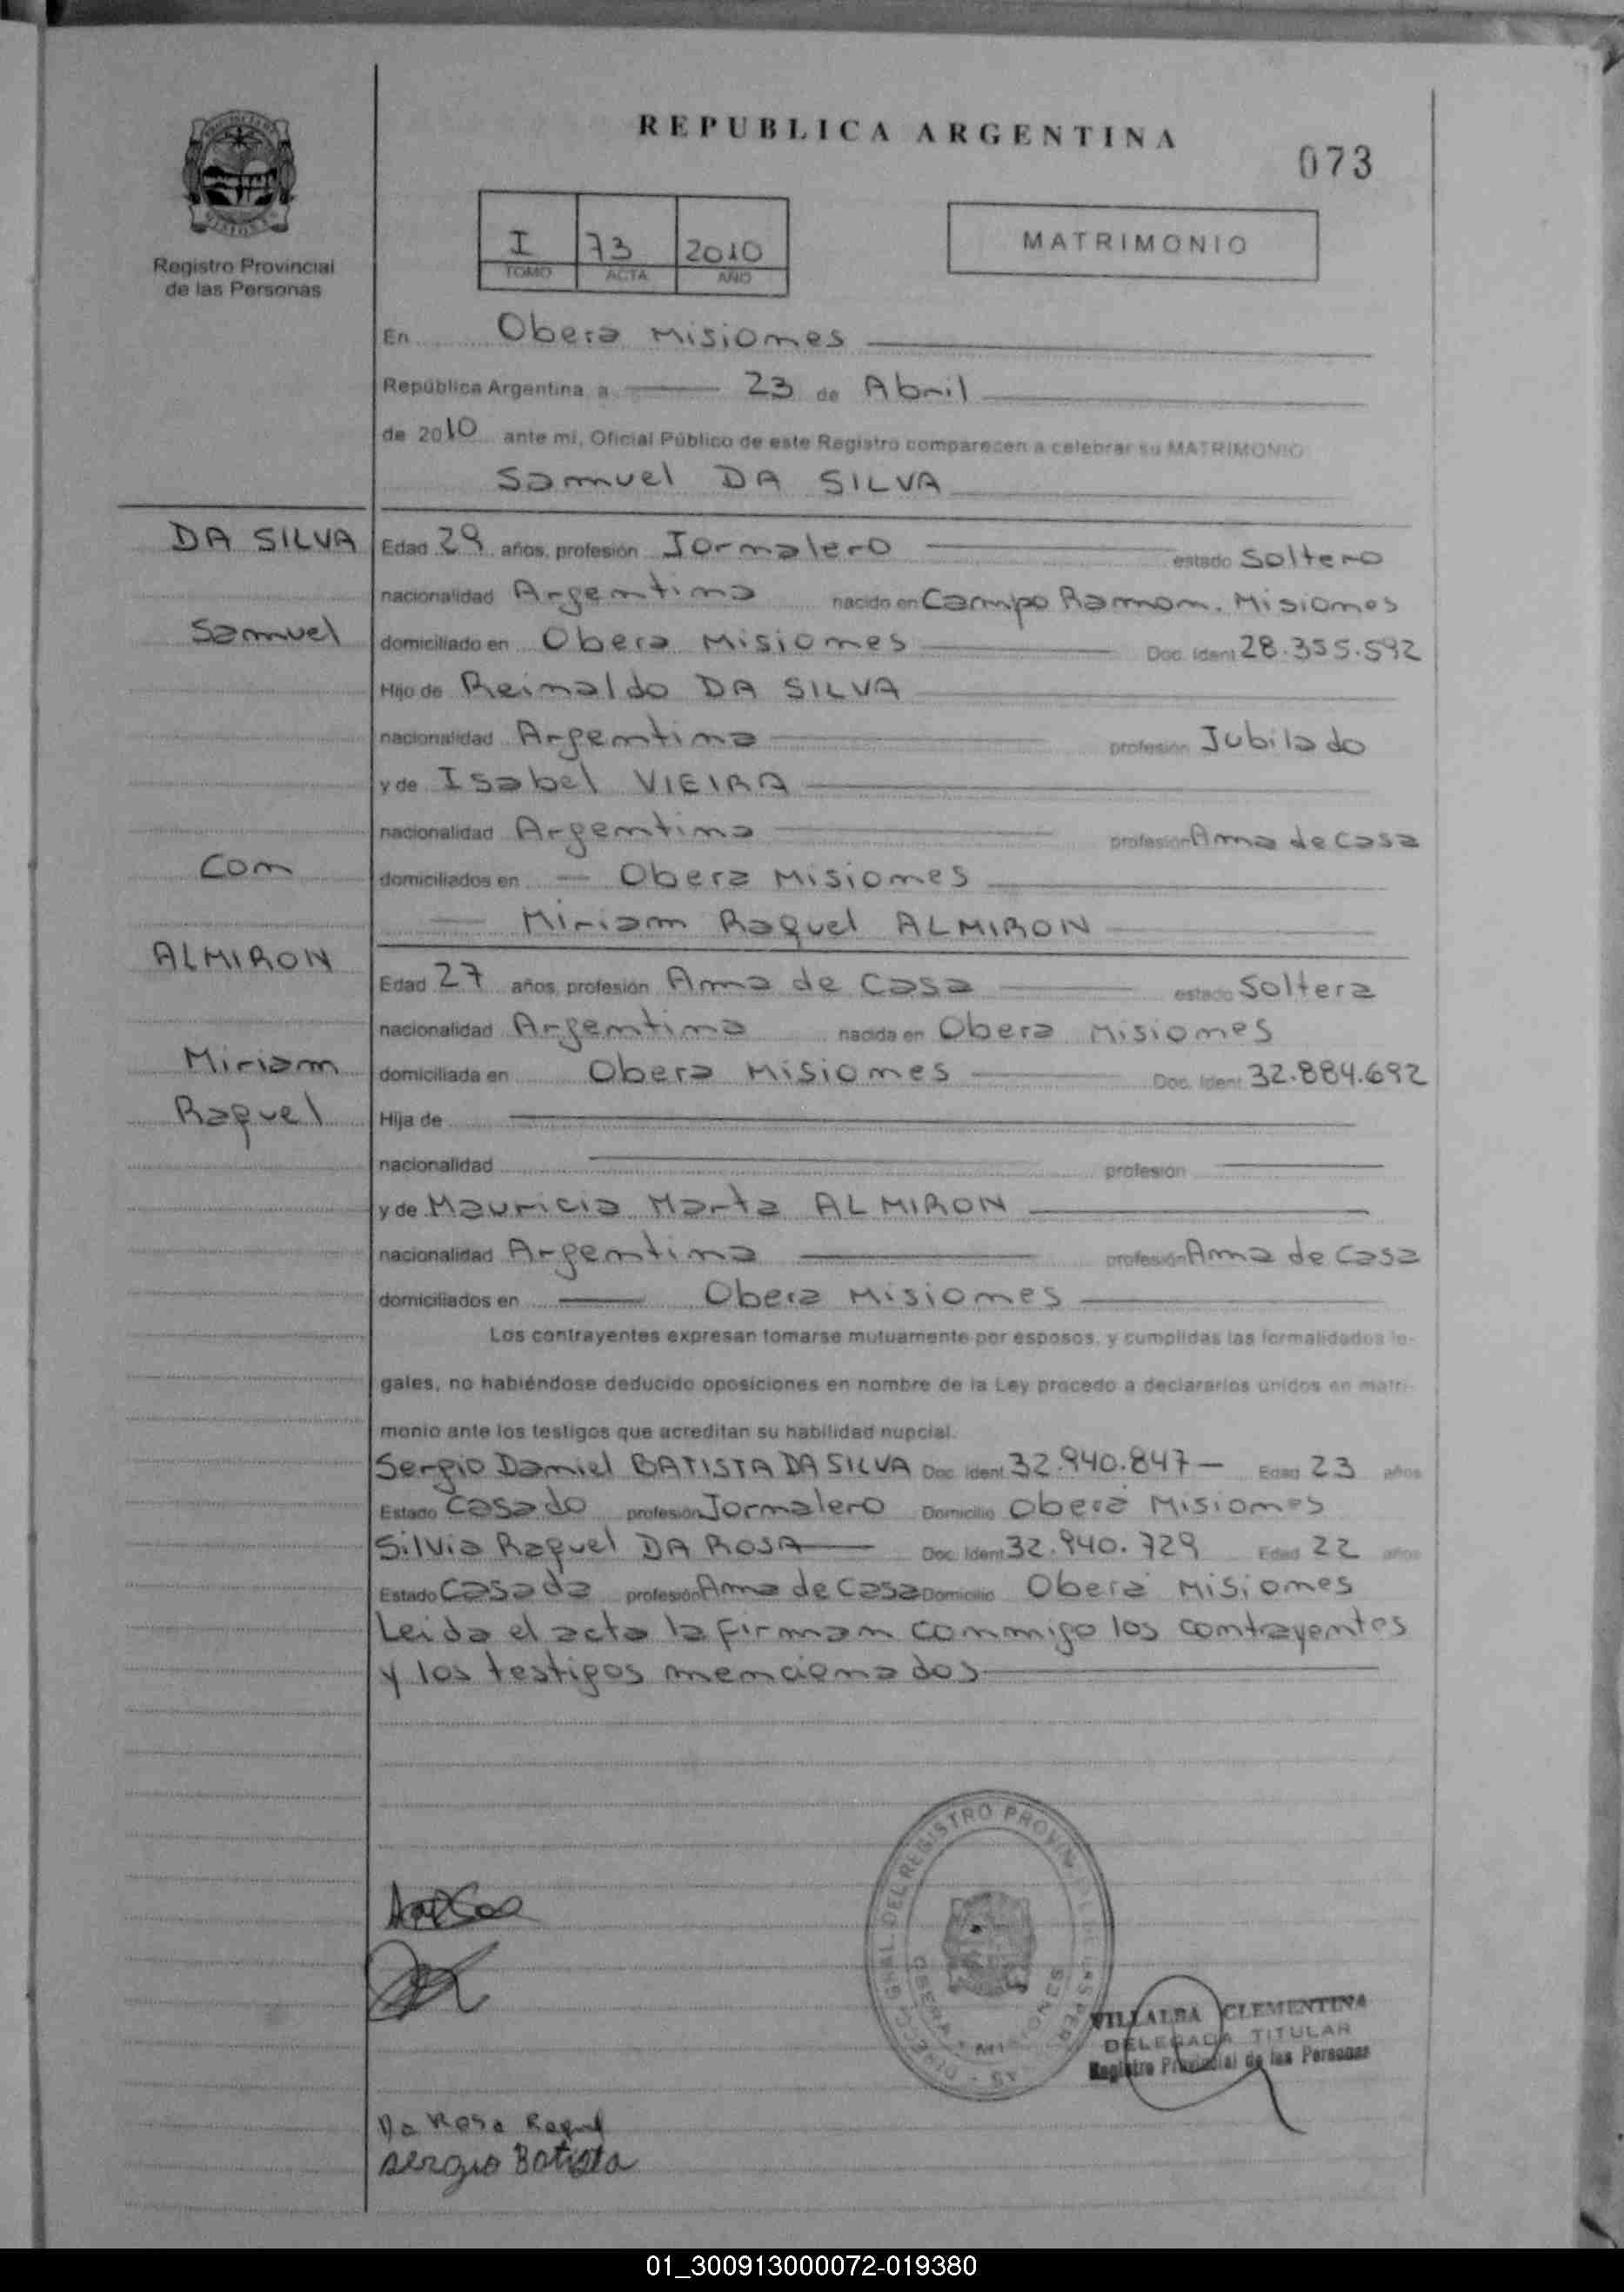 REPUBLICA ARGENTINA
073
I 73 2010
TOMO ACTA AÑO
MATRIMONIO
Registro Provincial
de las Personas
En Obera Misiones
República Argentina a 23 de Abril
de 2010 ante mi, Oficial Público de este Registro comparecen a celebrar su MATRIMONIO
Samuel DA SILVA
DA SILVA
Samuel
Con
ALMIRON
Miriam
Raquel
Edad 29 años, profesión Jornalero estado Soltero
nacionalidad Argentina nacido en Campo Ramon. Misiones
domiciliado en Obera Misiones Doc. Ident 28.355.592
Hijo de Reinaldo DA SILVA
nacionalidad Argentina profesión Jubilado
y de Isabel VIEIRA
nacionalidad Argentina profesión Ama de Casa
domiciliados en Obera Misiones
Miriam Raquel ALMIRON
Edad 27 años, profesión Ama de Casa estado Soltera
nacionalidad Argentina nacida en Obera Misiones
domiciliada en Obera Misiones Doc. Ident 32.884.692
Hija de
nacionalidad profesión
y de Mauricia Marta ALMIRON
nacionalidad Argentina profesión Ama de Casa
domiciliados en Obera Misiones
Los contrayentes expresan tomarse mutuamente por esposos, y cumplidas las formalidades le-
gales, no habiéndose deducido oposiciones en nombre de la Ley procedo a declararlos unidos en matri-
monio ante los testigos que acreditan su habilidad nupcial.
Sergio Daniel BATISTA DA SILVA Doc. Ident 32.940.847 Edad 23 años
Estado Casado profesión Jornalero Domicilio Oberá Misiones
Silvia Raquel DA ROSA Doc. Ident 32.940.729 Edad 22 años
Estado Casada profesión Ama de Casa Domicilio Oberá Misiones
Leida el acta la firman conmigo los contrayentes
y los testigos mencionados
VILLALBA CLEMENTINA
DELEGADA TITULAR
Registro Provincial de las Personas
Da Rosa Raquel
Sergio Batista
01_300913000072-019380